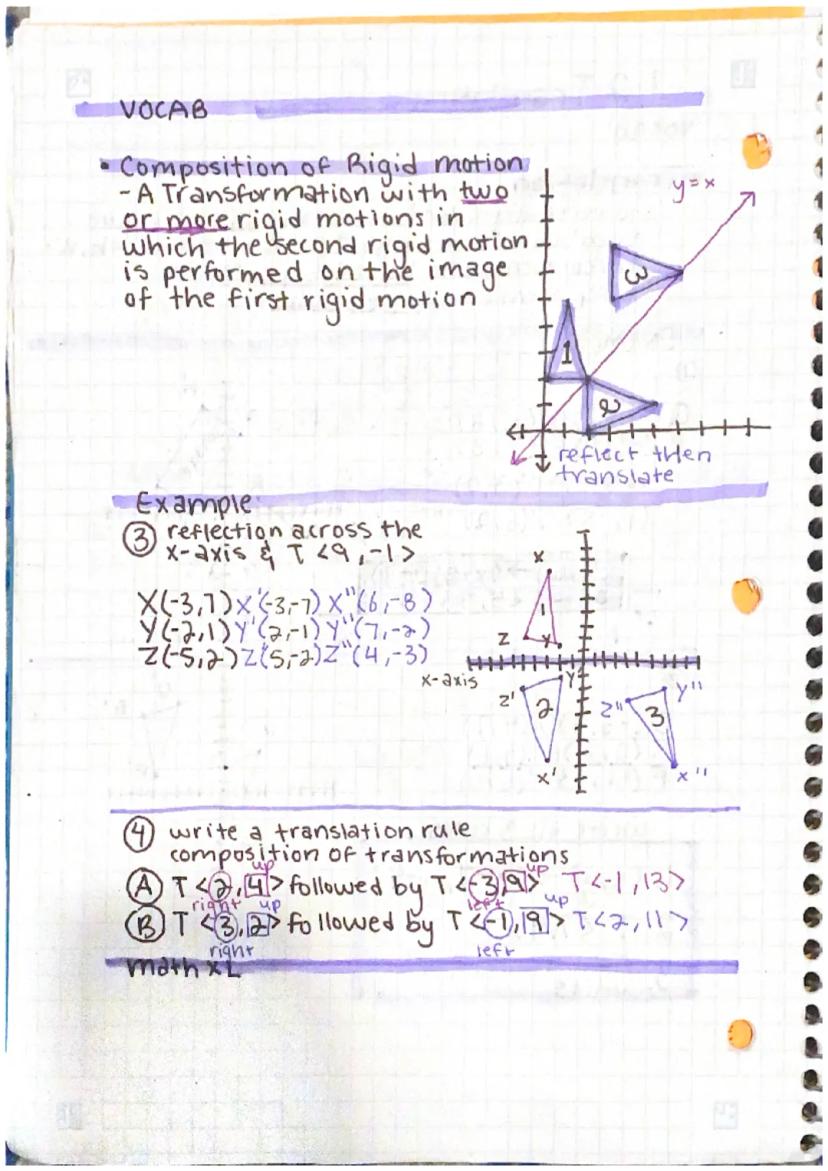 VOCAB
• Composition of Rigid motion
- A Transformation with two
or more rigid motions in
which the second rigid motion
is performed on the image
of the first rigid motion
y=x
3
1
2
reflect then
translate
Example
③ reflection across the
x-axis & T <9,-1>
X(-3,7) X'(-3,-7) X"(6,-8)
Y(-2,1) Y'(2,-1) Y"(7,-2)
Z(-5,2) Z'(5,-2) Z"(4,-3)
X
1
Z
Y
x-axis
Z'
Y'
2
X'
Z"
Y"
3
X"
④ write a translation rule
composition of transformations
up up
Ⓐ T <2,4> followed by T <-3,9> T <-1,13>
right up left up
Ⓑ T <3,2> followed by T <-1,9> T <2,11>
right left
math XL